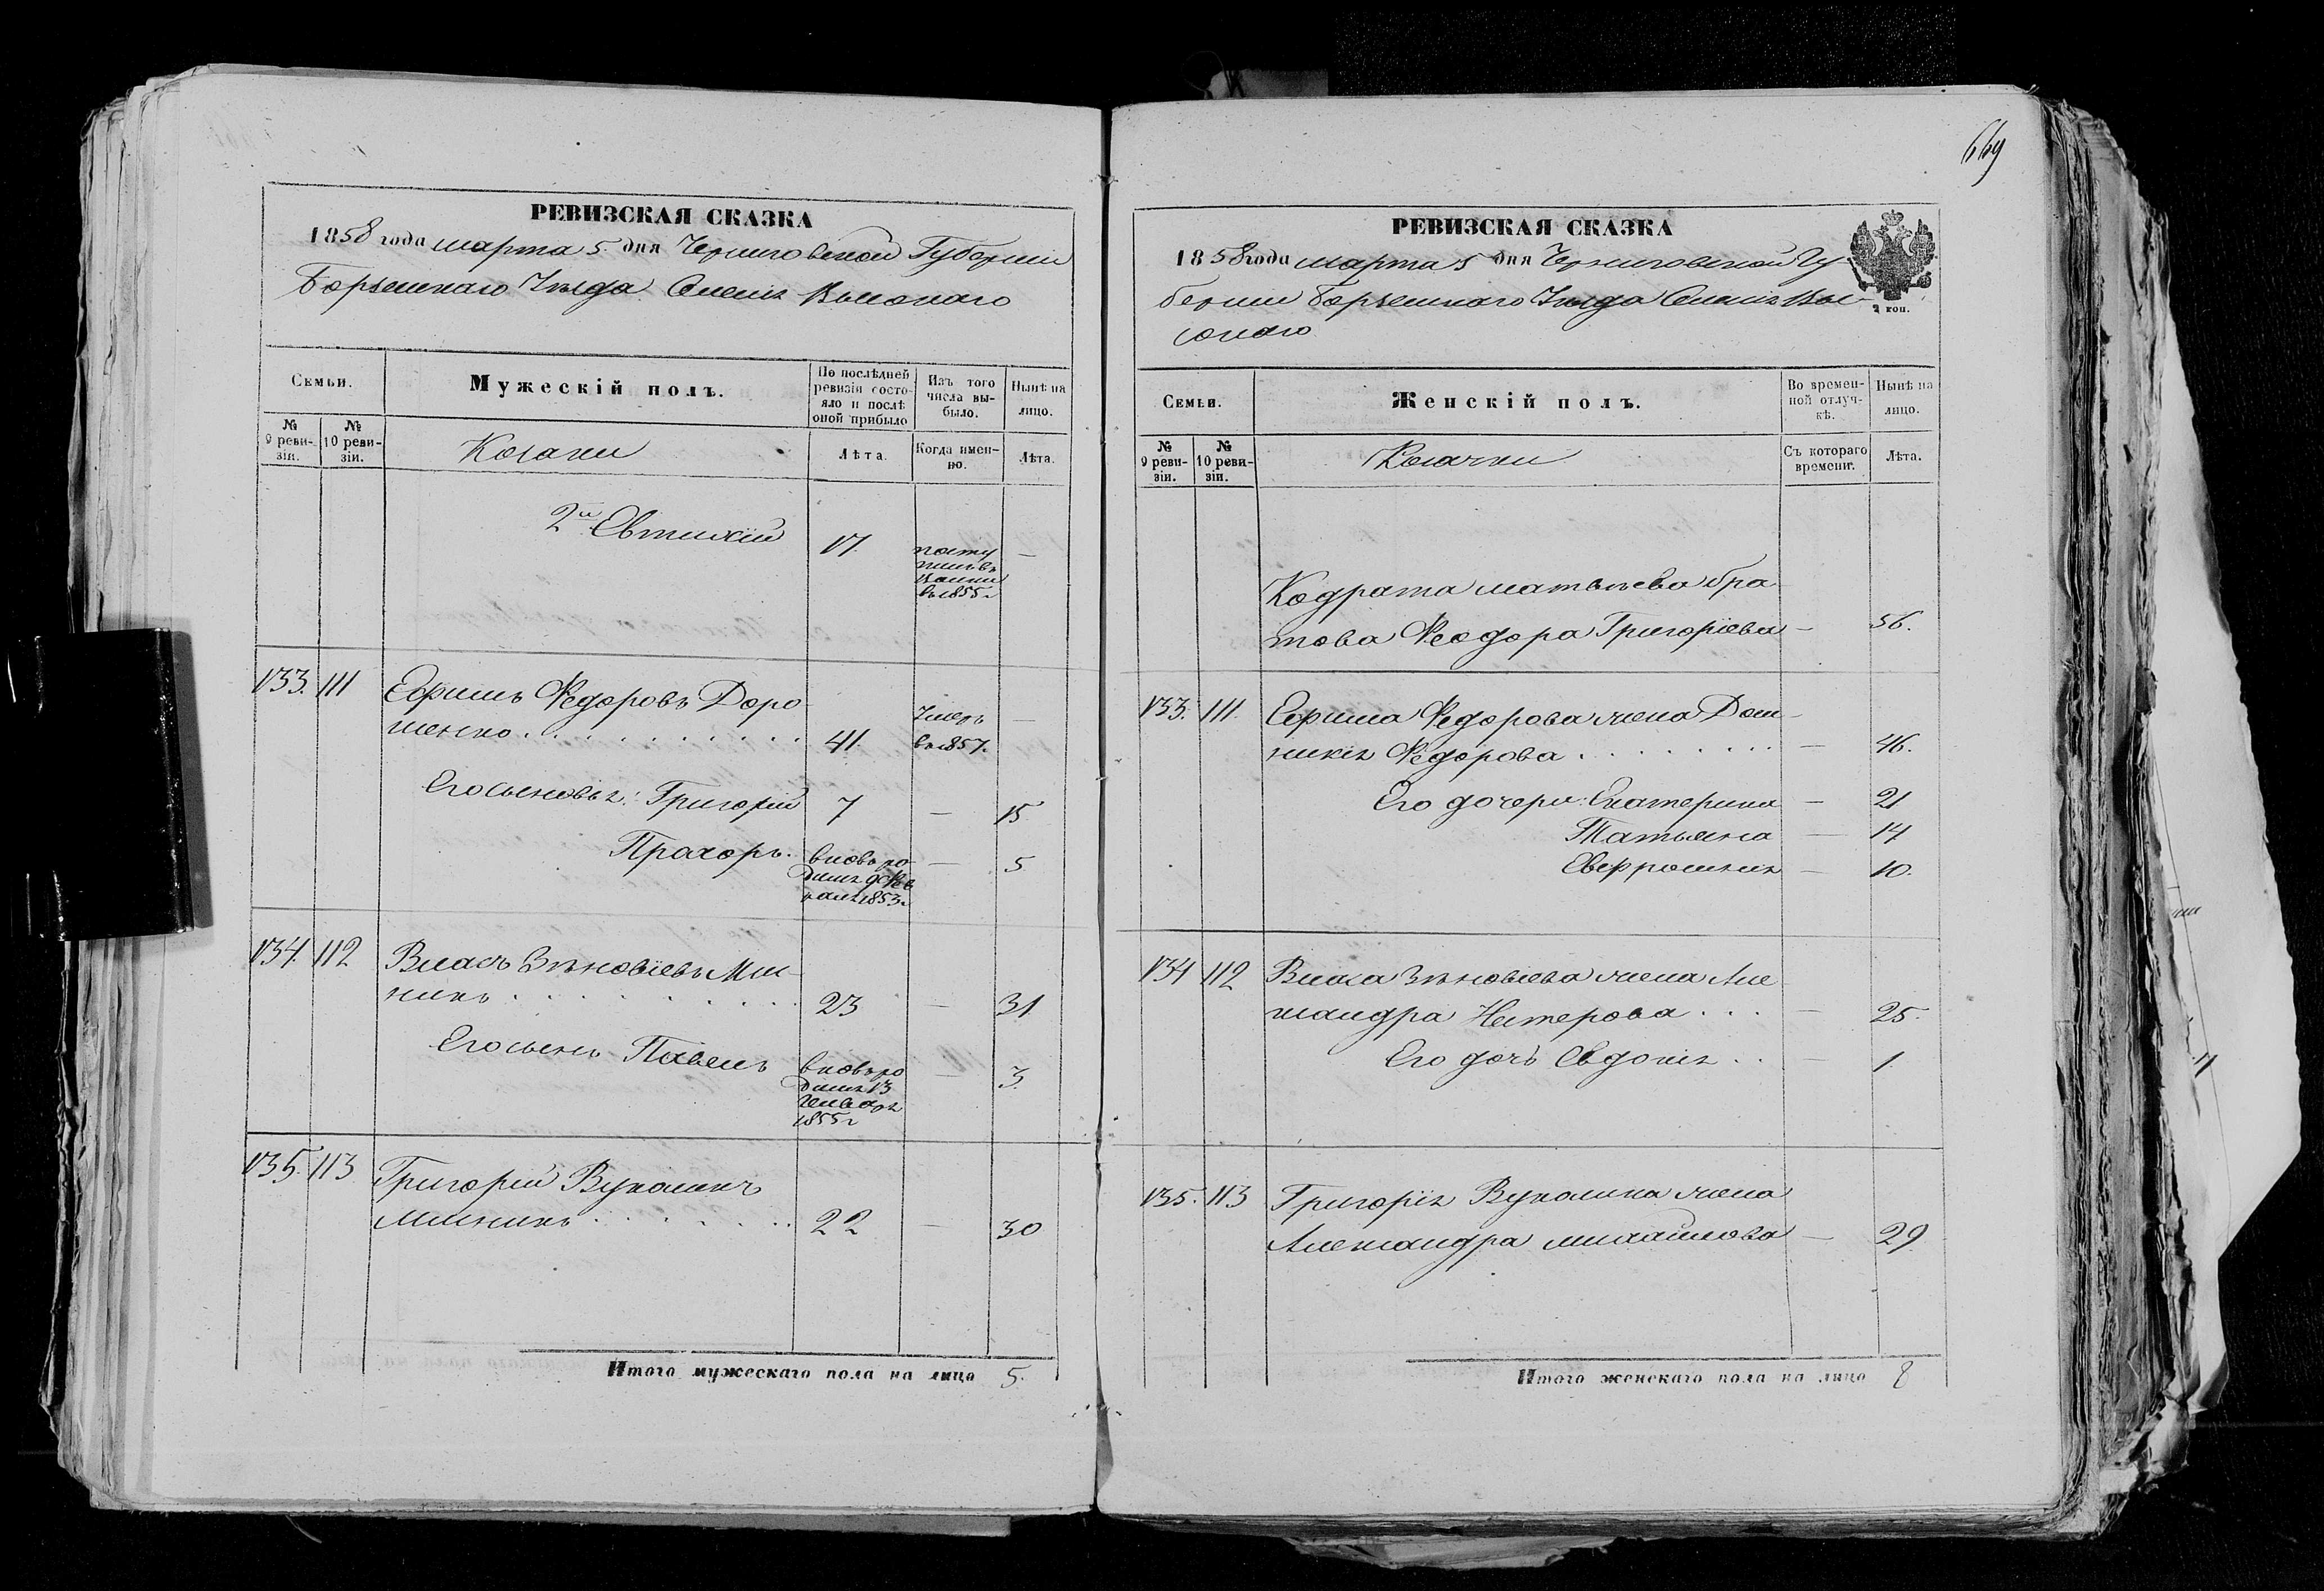 669
РЕВИЗСКАЯ СКАЗКА
1858 года марта 5. дня Черниговской Губерніи
Борзенскаго Уѣзда Селенія Высокаго
Семьи.
Мужескій полъ.
По послѣдней
ревизіи состо-
яло и послѣ
оной прибыло
Изъ того
числа вы-
было.
Нынѣ на
лицо.
№
9 реви-
зіи.
№
10 реви-
зіи.
Козаки
Лѣта.
Когда имен-
но.
Лѣта.
2й Евтихій 17. посту
пилъ въ
въ 1855г
133. 111 Ефимъ Федоровъ Доро
шенко . . . . . . . . . . 41. Умеръ
въ 1857. —
Его сыновья: Григорій 7 — 15
Прохоръ. вновь ро — 5
дился 9 Фев
раля 1853г
134. 112 Власъ Зѣновіевъ Ми-
никъ . . . . . . . . . . 23 — 31
Его сынъ Павелъ вновь ро — 3.
дился 13
Генваря
1855г
135. 113 Григорій Вуколинъ
Миникъ . . . . . . . 22 — 30
Итого мужескаго пола на лицо 5.
РЕВИЗСКАЯ СКАЗКА
1858 года марта 5 дня Черниговской Гу-
берніи Борзенскаго Уѣзда Селенія Вы-
сокаго
коп.
Семьи.
Женскій полъ.
Во времен-
ной отлуч-
кѣ.
Нынѣ на
лицо.
№
9 реви-
зіи.
№
10 реви-
зіи.
Козачки
Съ котораго
времени.
Лѣта.
Кодрата Матвѣева бра
това Феодора Григоріева — 56.
133. 111. Ефима Федорова жена Дом-
никія Федорова . . . . . . . . — 46.
Его дочери: Екатерина — 21
Татьяна — 14
Евфросинія — 10.
134 112 Власа Зѣновіева жена Але
ксандра Нестерова . . . — 25.
Его дочь Евдокія . . — 1.
135. 113 Григорія Вуколина жена
Александра Михайлова — 29
Итого женскаго пола на лицо 8